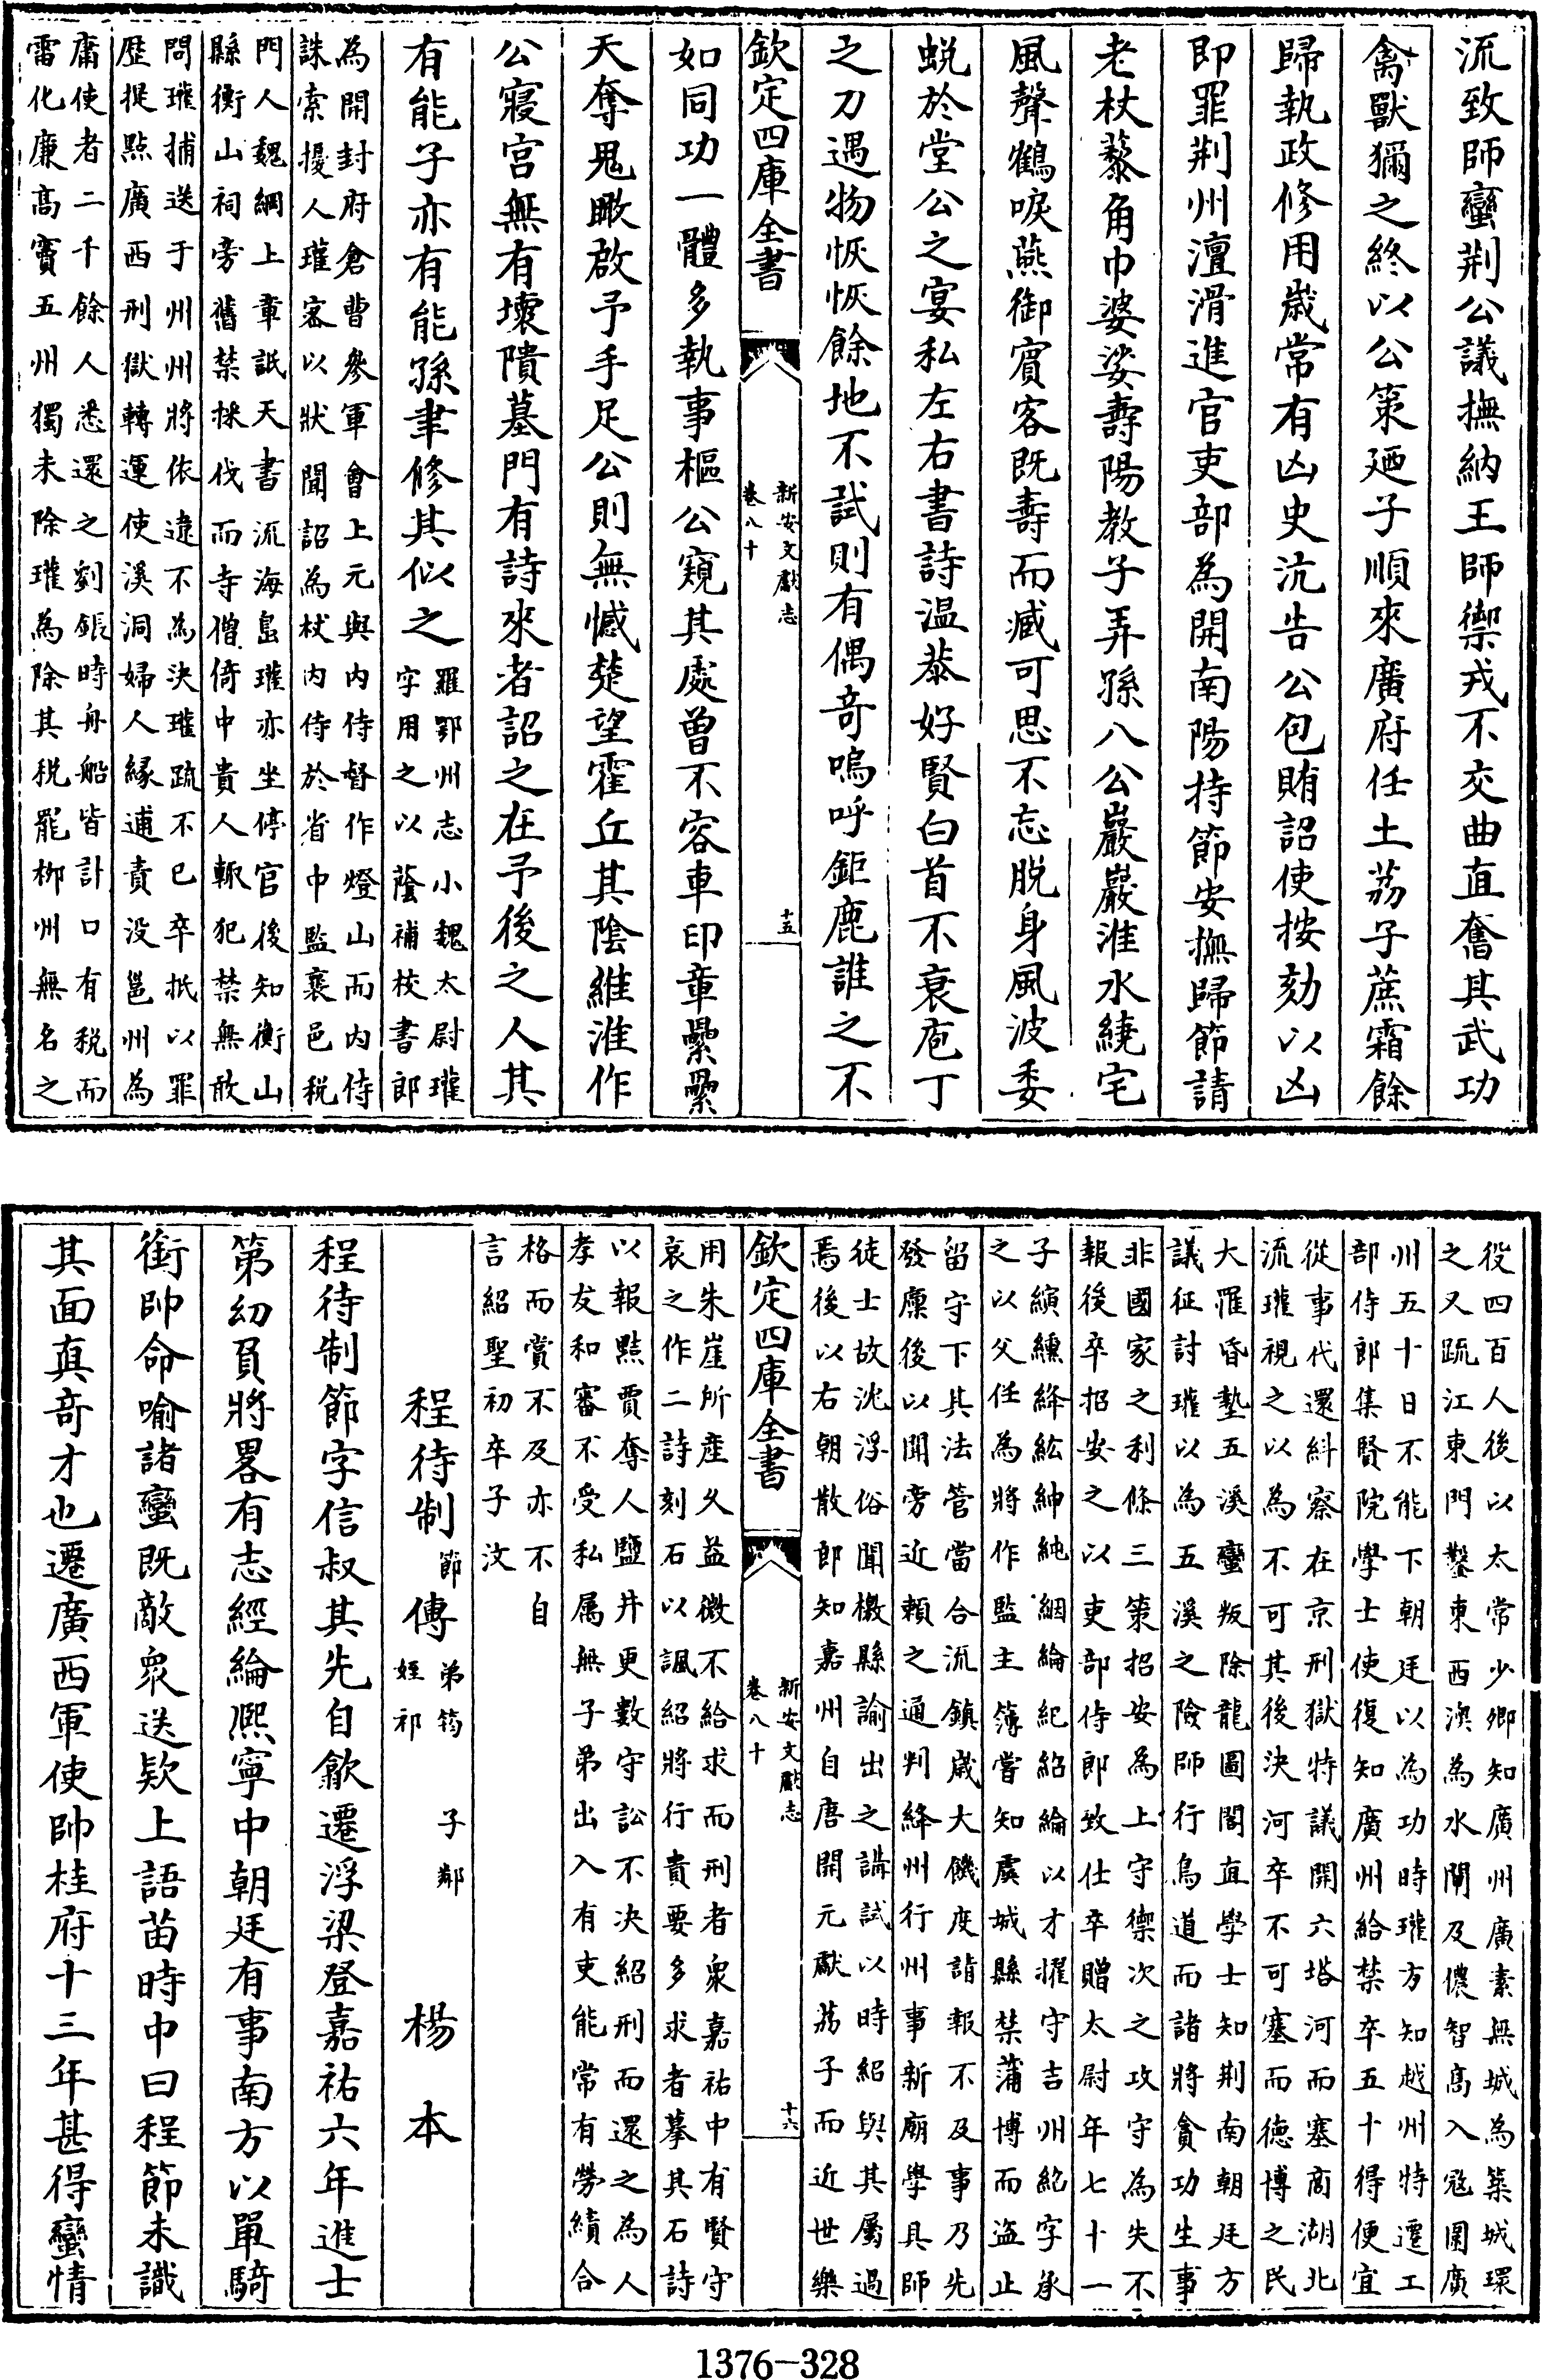 流致師蠻荆公議撫納王師禦戎不交曲直奮其武功
禽獸獮之終以公策廼子順來廣府任土荔子蔗霜餘
歸執政修用歲常有凶史沆告公包賄詔使按劾以凶
即罪荆州澶滑進官吏部為開南陽持節安撫歸節請
老杖藜角巾婆娑壽陽教子弄孫八公巖巖淮水繞宅
風聲鶴唳燕御賓客既壽而臧可思不忘脱身風波委
蜕於堂公之宴私左右書詩温恭好賢白首不衰庖丁
之刀遇物恢恢餘地不試則有偶竒嗚呼鉅鹿誰之不
欽定四庫全書
新安文獻志
卷八十
十五
如同功一體多執事樞公窺其處曾不容車印章纍纍
天奪鬼瞰啟予手足公則無憾楚望霍丘其陰維淮作
公寢宫無有壞隤墓門有詩來者詔之在予後之人其
有能子亦有能孫聿修其似之
羅鄂州志小魏太尉瓘
字用之以蔭補校書郎
為開封府倉曹參軍會上元與内侍督作燈山而内侍
誅索擾人瓘客以狀聞詔為杖内侍於省中監襄邑税
門人魏綱上章詆天書流海島瓘亦坐停官後知衡山
縣衡山祠旁舊禁採伐而寺僧倚中貴人輙犯禁無敢
問瓘捕送于州州將依違不為決瓘疏不已卒抵以罪
歴提點廣西刑獄轉運使溪洞婦人緣逋責没邕州為
庸使者二千餘人悉還之劉鋹時舟船皆計口有税而
雷化廉髙竇五州獨未除瓘為除其税罷栁州無名之
役四百人後以太常少卿知廣州廣素無城為築城環
之又疏江東門鑿東西澳為水閘及儂智高入冦圍廣
州五十日不能下朝廷以為功時瓘方知越州特遷工
部侍郎集賢院學士使復知廣州給禁卒五十得便宜
從事代還糾察在京刑獄特議開六塔河而塞商湖北
流瓘視之以為不可其後決河卒不可塞而德博之民
大罹昏墊五溪蠻叛除龍圖閣直學士知荆南朝廷方
議征討瓘以為五溪之險師行鳥道而諸將貪功生事
非國家之利條三策招安為上守禦次之攻守為失不
報後卒招安之以吏部侍郎致仕卒贈太尉年七十一
子縯纁絳紘紳純絪綸紀紹綸以才擢守吉州紀字承
之以父任為將作監主簿嘗知虞城縣禁蒲博而盜止
留守下其法管當合流鎮歲大饑度諸報不及事乃先
發廪後以聞旁近賴之通判絳州行州事新廟學具師
徒士故沈浮俗聞檄縣諭出之講試以時紹與其屬過
焉後以右朝散郎知嘉州自唐開元獻荔子而近世樂
欽定四庫全書
新安文獻志
卷八十
十六
用朱崖所產乆益微不給求而刑者衆嘉祐中有賢守
哀之作二詩刻石以諷紹將行貴要多求者摹其石詩
以報㸃賈奪人鹽井更數守訟不决紹刑而還之為人
孝友和審不受私属無子弟出入有吏能常有勞績合
格而賞不及亦不自
言紹聖初卒子汶
程待制節傳
弟筠 子鄰
姪祁
楊本
程待制節字信叔其先自歙遷浮梁登嘉祐六年進士
第幼負將畧有志經綸熈寧中朝廷有事南方以單騎
銜帥命喻諸蠻既敵衆送欵上語苗時中曰程節未識
其面真竒才也遷廣西軍使帥桂府十三年甚得蠻情
1376-328